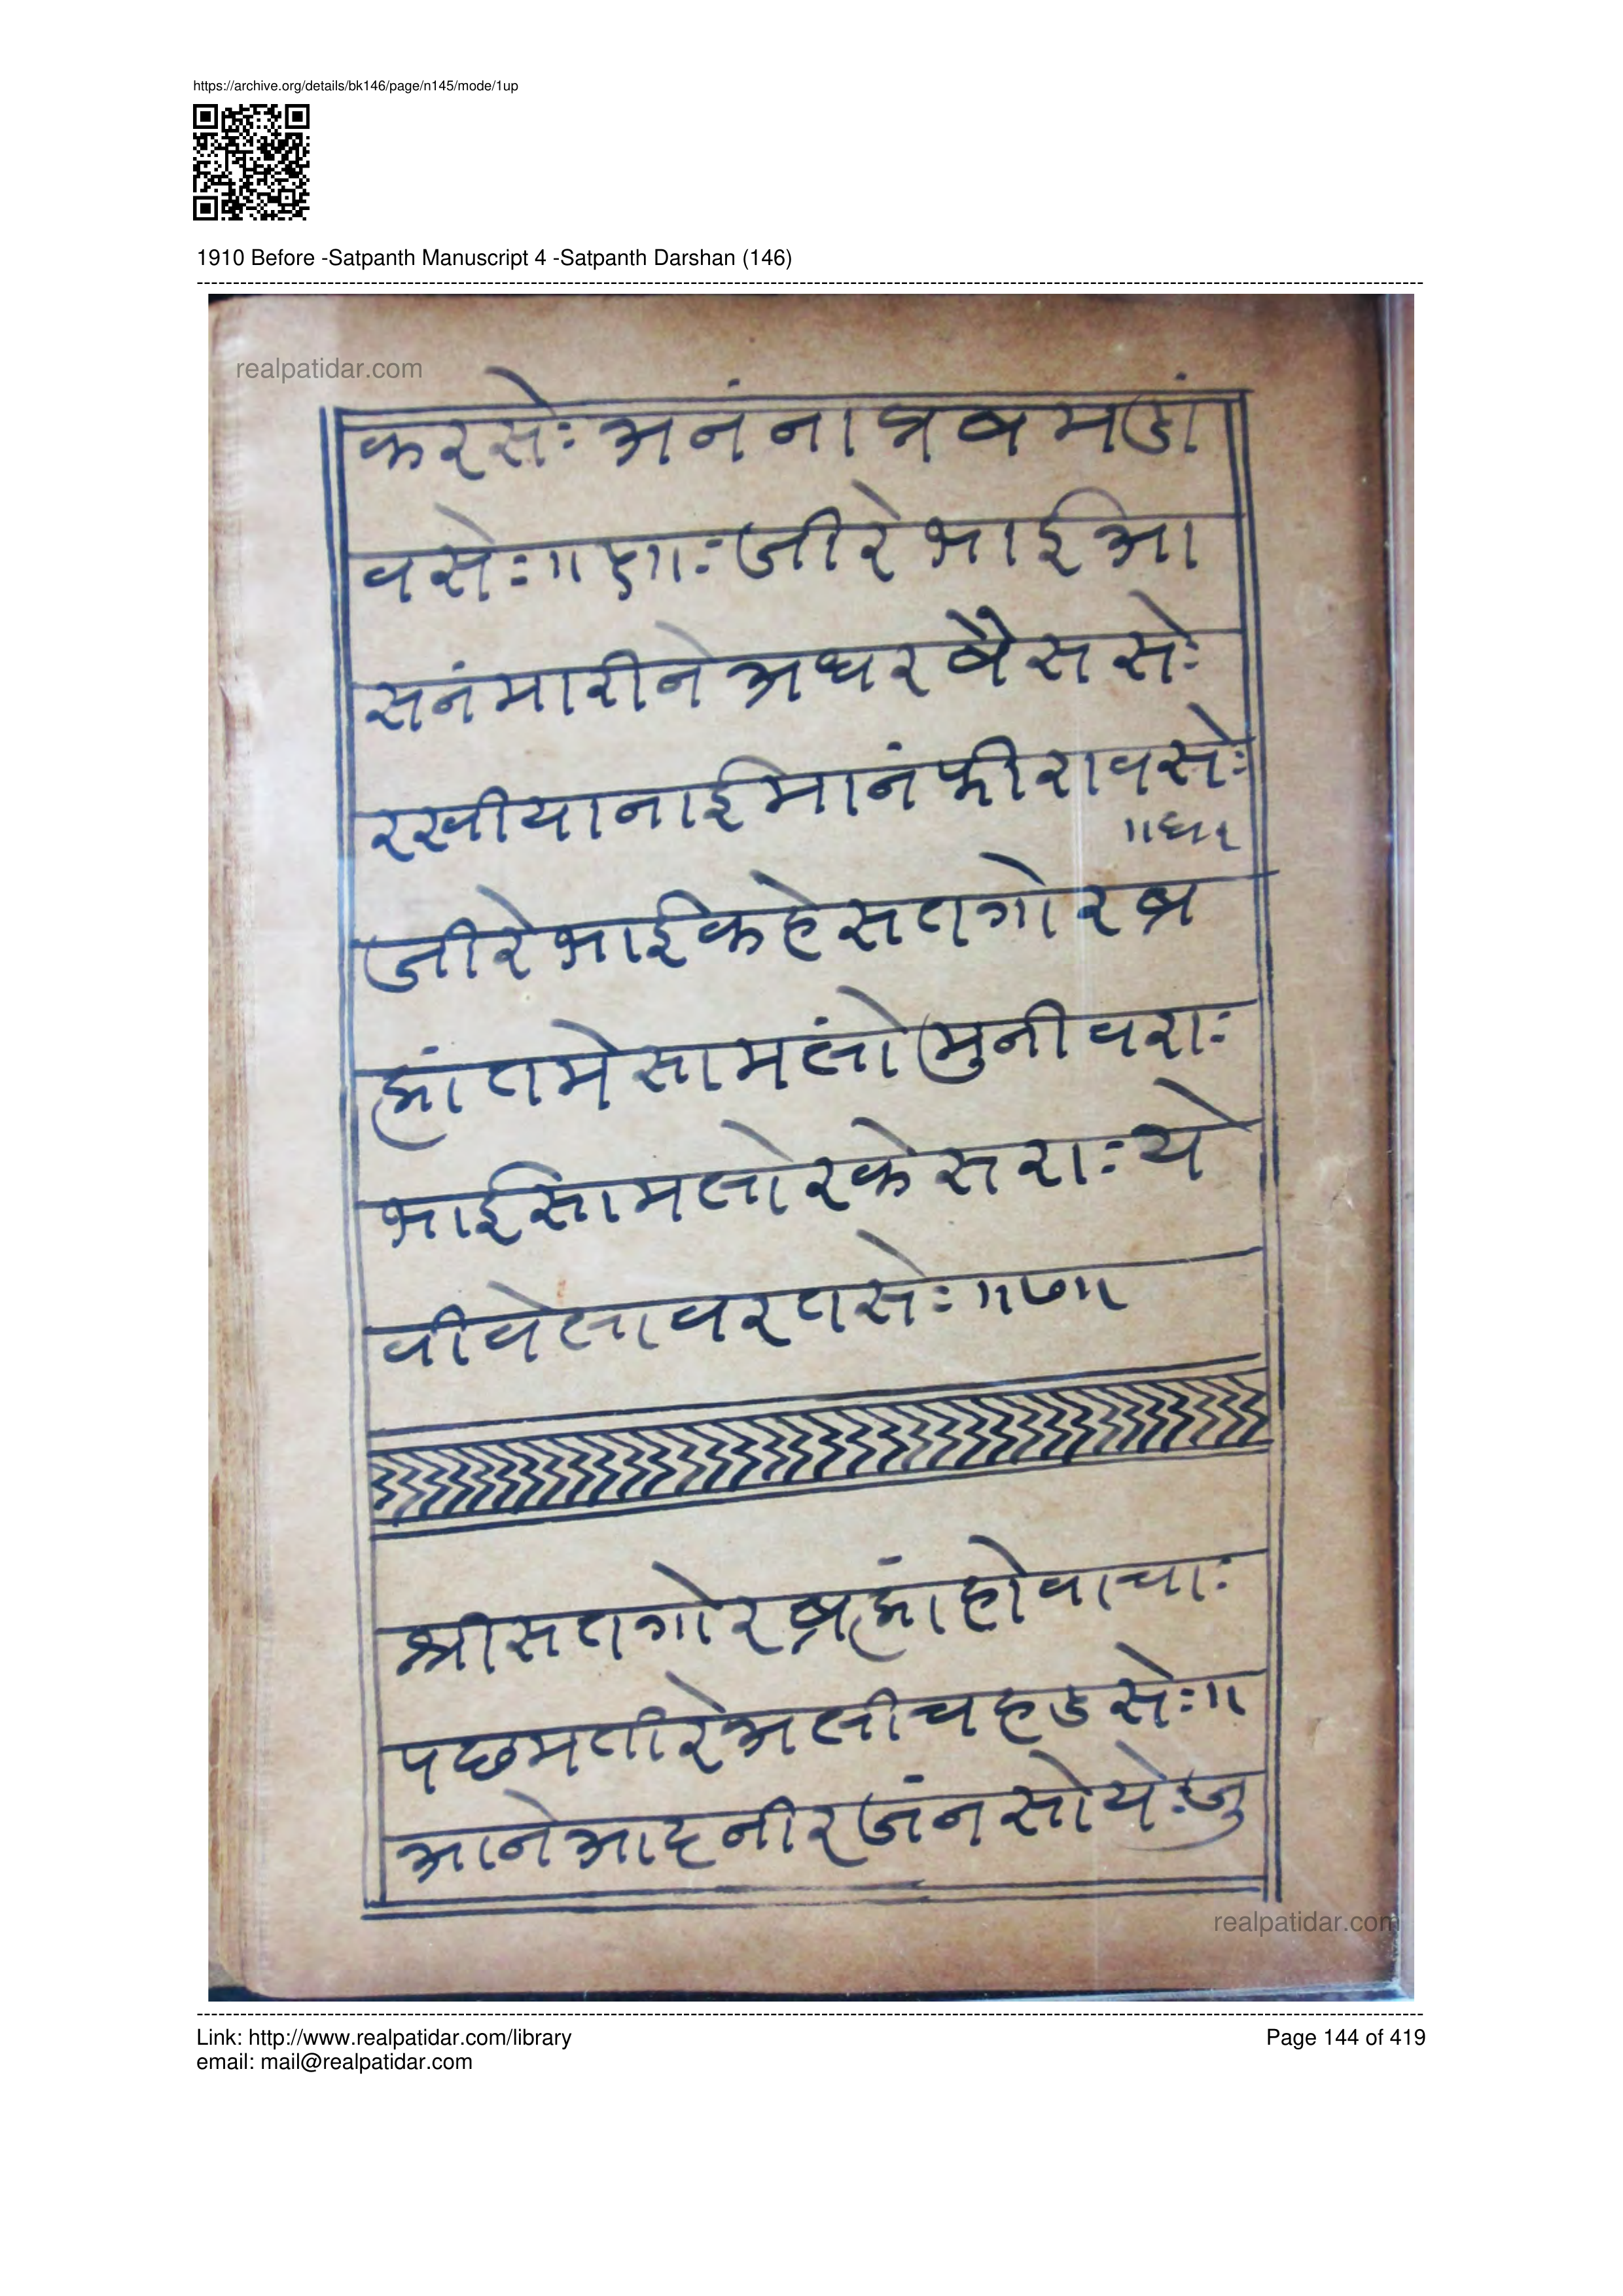 https://archive.org/details/bk146/page/n145/mode/1up
1910 Before -Satpanth Manuscript 4 -Satpanth Darshan (146)
realpatidar.com
करसेः अनंना
वसेः॥ जीरे भाई आ
सनंमारीने अधर बैससेः
रखीयाना ईमानं फीरावसेः
जीरे भाई कहे सतगोर ब्र
ह्मां तमे सामलो मुनीवराः
भाई सामलो रकेसराः ये
वी वेला वरतसेः ॥७॥
श्री सतगोर ब्रह्मां होवाचाः
पछमती रे अली चहडसेः॥
आने आद नीरजंन सोयेः जु
realpatidar.com
Link: http://www.realpatidar.com/library
Page 144 of 419
email: mail@realpatidar.com